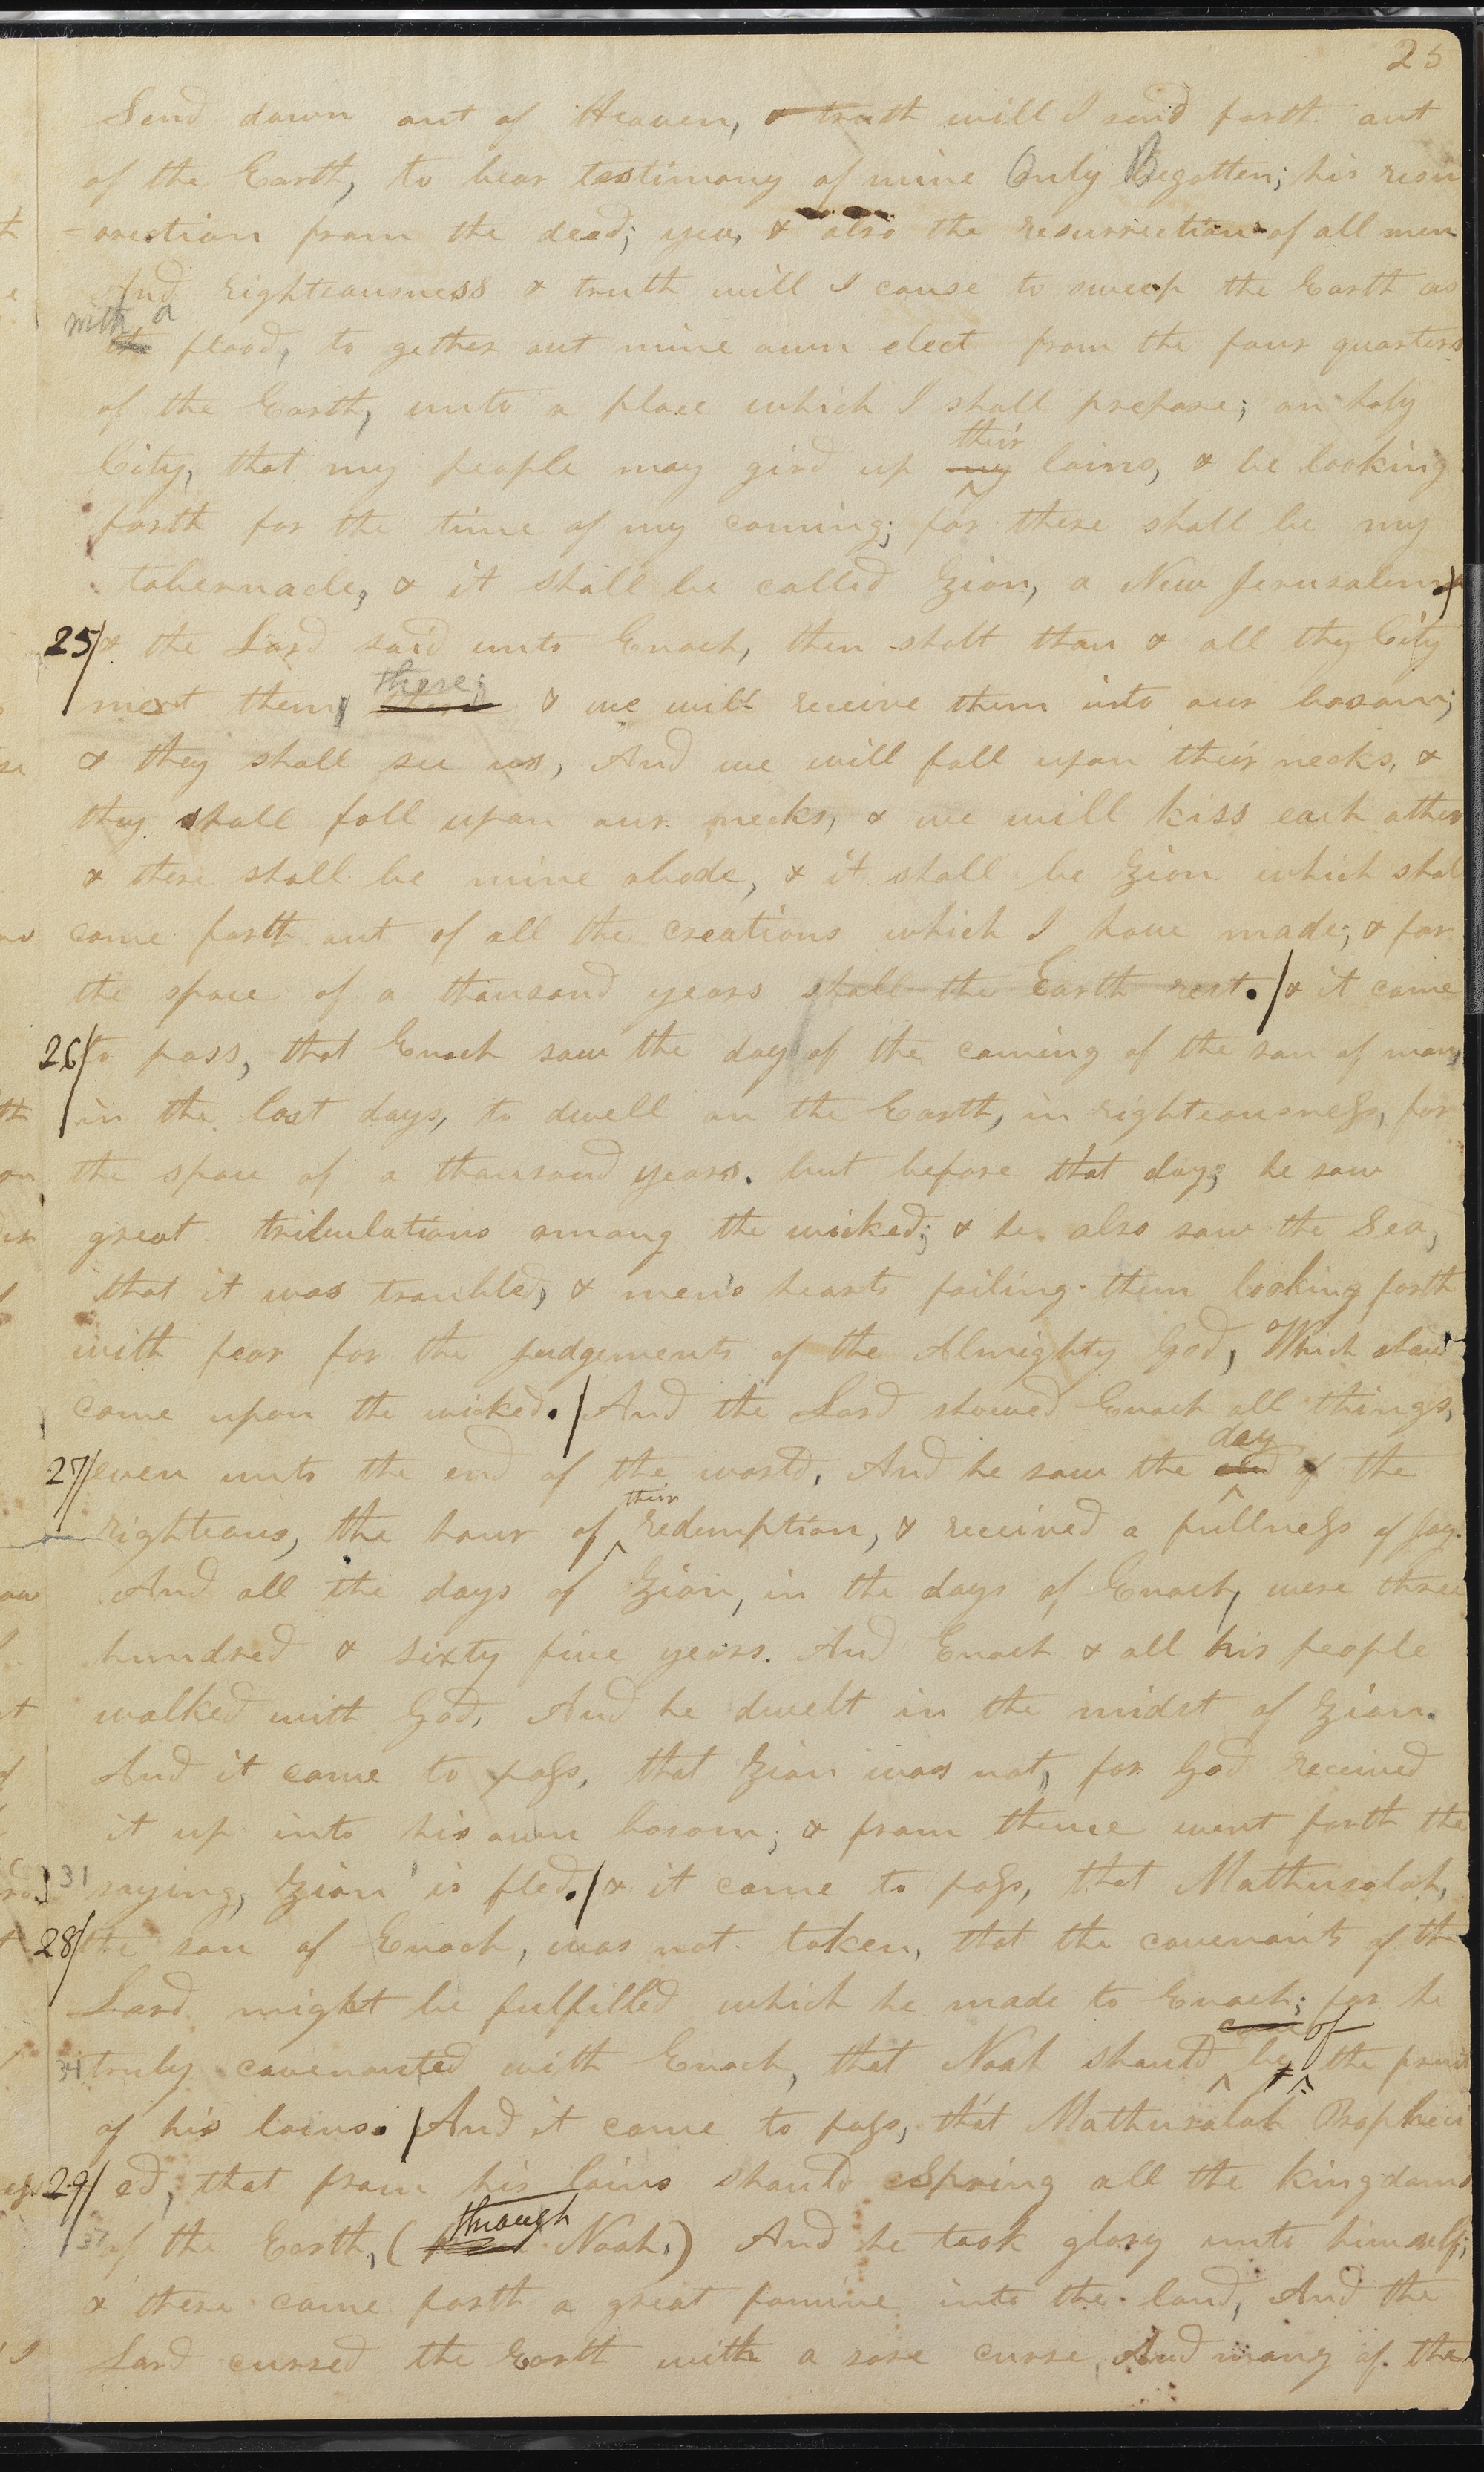 25
Send down out of Heaven, & truth will I send forth out
of the Earth, to bear testimony of mine Only Begotten; his resur
=rection from the dead; yea, & also the resurrection of all men
And righteousness & truth will I cause to sweep the Earth as
with a
flood, to gether out mine own elect from the four quarters
of the Earth, unto a place which I shall prepare; an holy
their
City, that my people may gird up my loins, & be looking
forth for the time of my coming; for there shall be my
tabernacle, & it shall be called Zion, a New Jerusalem
25/ & the Lord said unto Enoch, then shalt thou & all thy City
there;
meet them & we will receive them into our bosom;
& they shall see us, And we will fall upon their necks, &
they shall fall upon our necks, & we will kiss each other
& there shall be mine abode, & it shall be Zion which shall
come forth out of all the creations which I have made; & for
the space of a thousand years shall the Earth rest. / & it came
26/ to pass, that Enoch saw the day of the coming of the son of man,
in the last days, to dwell on the Earth, in righteousness, for
the space of a thousand years. but before that day; he saw
great tribulations among the wicked; & he also saw the Sea,
that it was troubled, & men's hearts failing them looking forth
with fear for the judgements of the Almighty God, Which should
come upon the wicked. / And the Lord showed Enoch all things,
day
27/ even unto the end of the world, And he saw the end of the
their
righteous, the hour of redemption, & received a fullness of Joy.
And all the days of Zion, in the days of Enoch, were three
hundred & sixty five years. And Enoch & all his people
walked with God, And he dwelt in the midst of Zion.
And it came to pass, that Zion was not, for God received
it up into his own bosom; & from thence went forth the
31 saying, Zion is fled. / & it came to pass, that Mathusalah,
28/ the son of Enoch, was not taken, that the covenants of the
Lord might be fulfilled which he made to Enoch; for he
come of
34 truly covenanted with Enoch, that Noah should be the fruit
of his loins. / And it came to pass, that Mathusalah Prophesi
29/ ed, that from his loins should Spring all the kingdoms
through
37 of the Earth, ( Noah,) And he took glory unto himself;
& there came forth a great famine into the land, And the
Lord cursed the Earth with a sore curse, And many of the